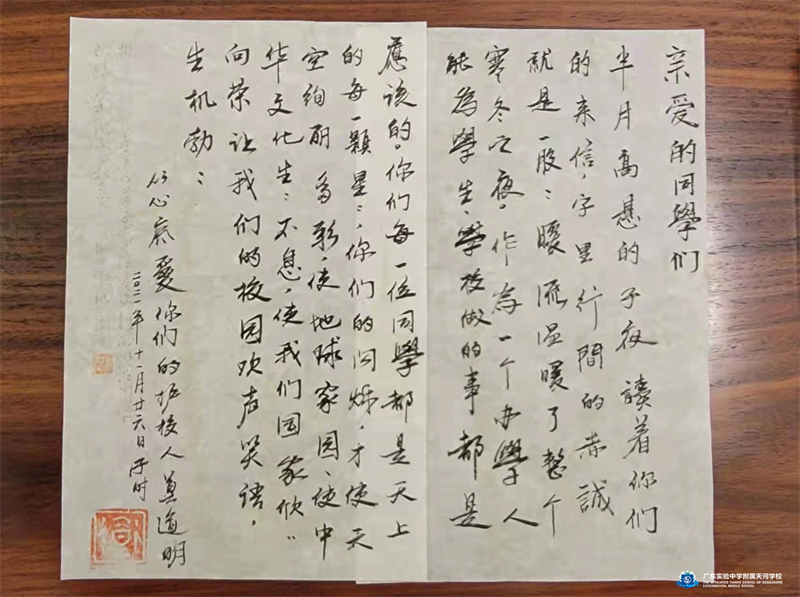 亲爱的同學们
半月高悬的子夜讀着你们
的来信,字里行間的赤誠
就是一股:暖流温暖了整个
寒冬之夜。作為一个办學人
能為學生、學校做的事都是
應该的。你们每一位同學都是天上
的每一顆星:,你们的闪烁,才使天
空绚丽多彩,使地球家园、使中
华文化生:不息,使我们国家欣〃
向荣让我们的校园欢声笑语,
生机勃:
从心底爱你们的护校人莫道明
二〇二一年十一月廿六日子时
广东实验中学附属天河学校
THE AFFILIATED TIANHE SCHOOL OF GUANGDONG
EXPERIMENTAL MIDDLE SCHOOL